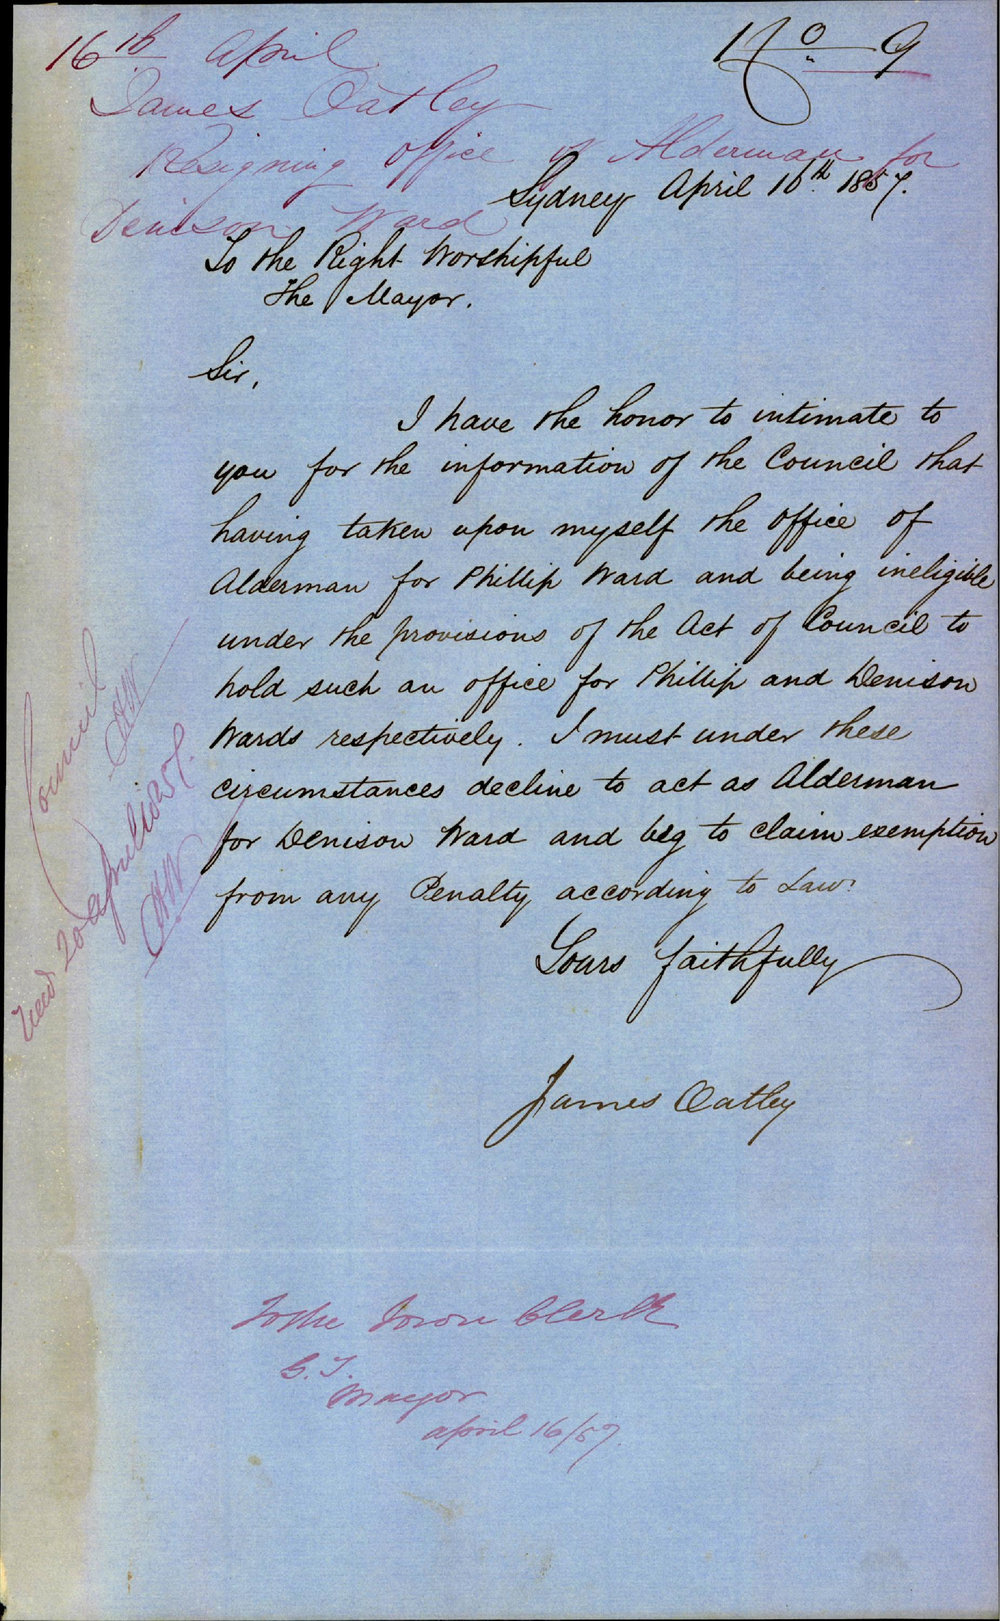 16th April
James Oatley
Resigning Office of Alderman for
Denison Ward
No 9
Sydney April 16th 1857.
To the Right Worshipful
The Mayor.
Sir,
I have the honor to intimate to
you for the information of the Council that
having taken upon myself the office of
Alderman for Phillip Ward and being ineligible
under the provisions of the Act of Council to
hold such an office for Phillip and Denison
Wards respectively. I must under these
circumstances decline to act as Alderman
for Denison Ward and beg to claim exemption
from any Penalty according to Law.
Yours faithfully
James Oatley
Council
20 April 1857.
To the Town Clerk
G. T.
Mayor
april 16/57